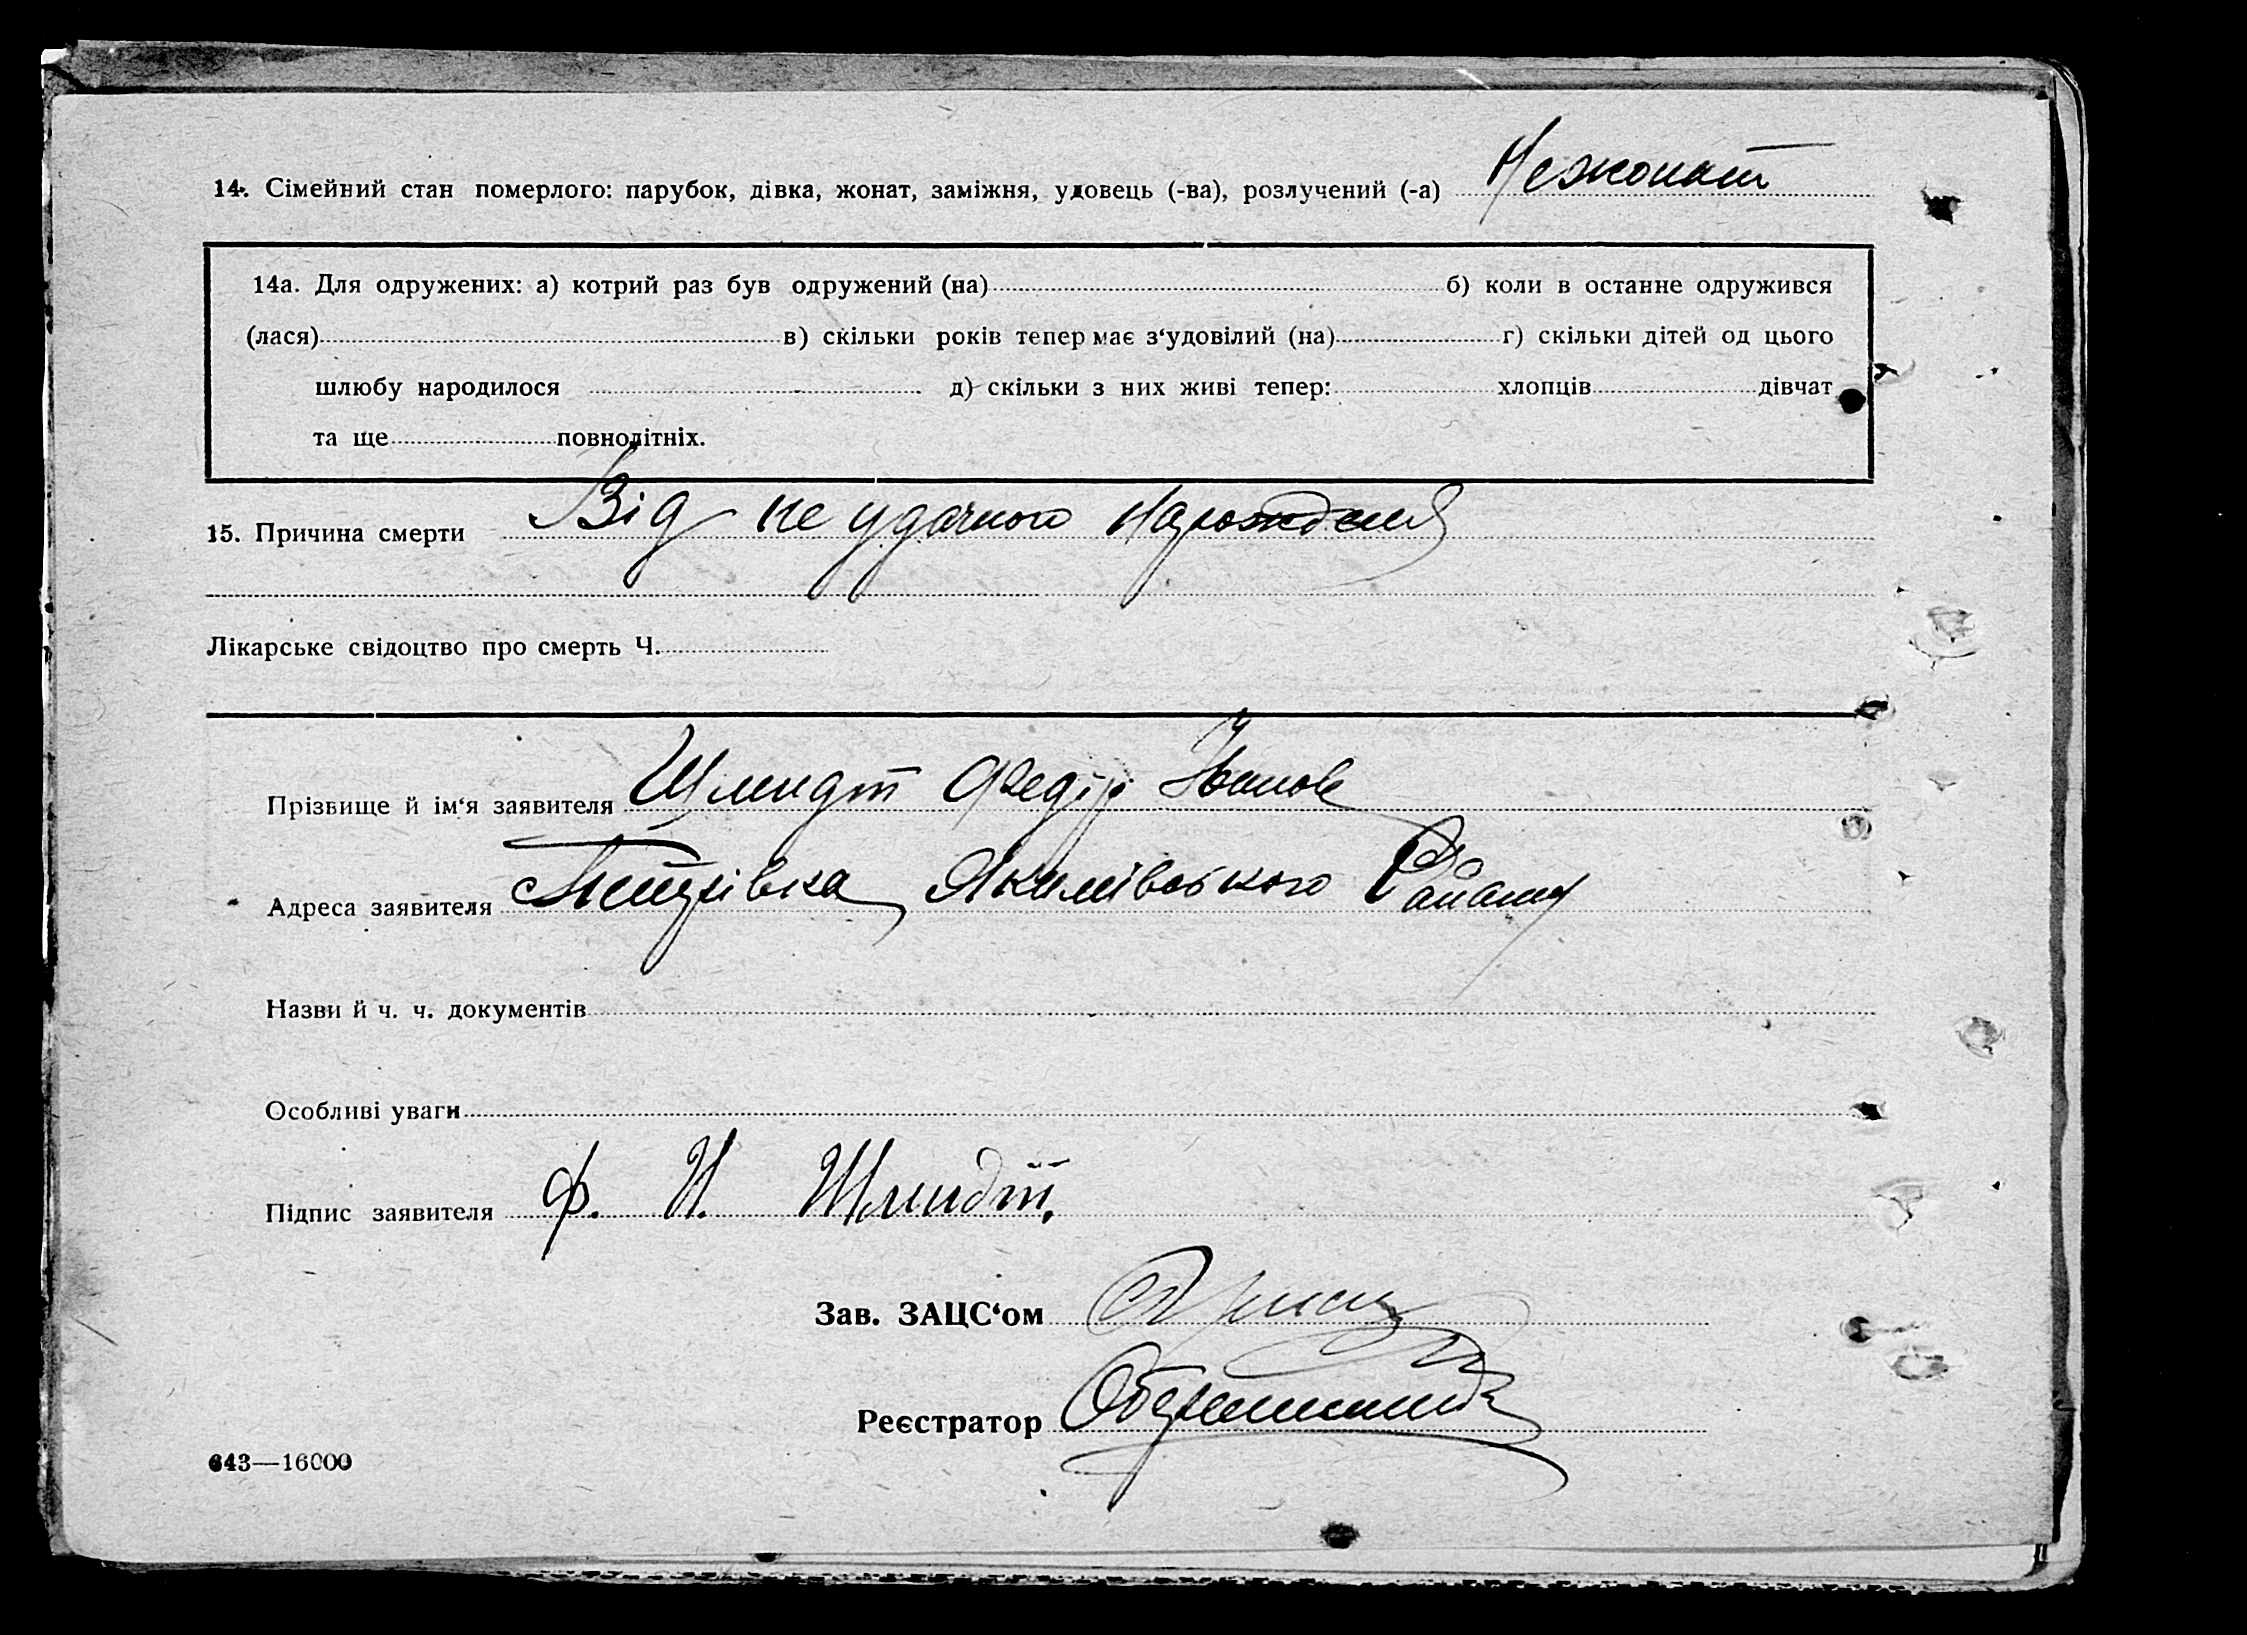 14. Сімейний стан померлого: парубок, дівка, жонат, заміжня, удовець (-ва), розлучений (-а) Нежонат
14а. Для одружених: а) котрий раз був одружений (на) б) коли в останне одружився
(лася) в) скільки років тепер має з‘удовілий (на) г) скільки дітей од цього
шлюбу народилося д) скільки з них живі тепер: хлопців дівчат
та ще повнолітніх.
15. Причина смерти Від не удачного нарождения
Лікарське свідоцтво про смерть Ч.
Прізвище й ім‘я заявителя Шмидт Федір Іванов
Адреса заявителя Якимівського Району
Назви й ч. ч. документів
Особливі уваги
Підпис заявителя Ф. И. Шмидт.
Зав. ЗАЦС‘ом
Реєстратор
643—16000